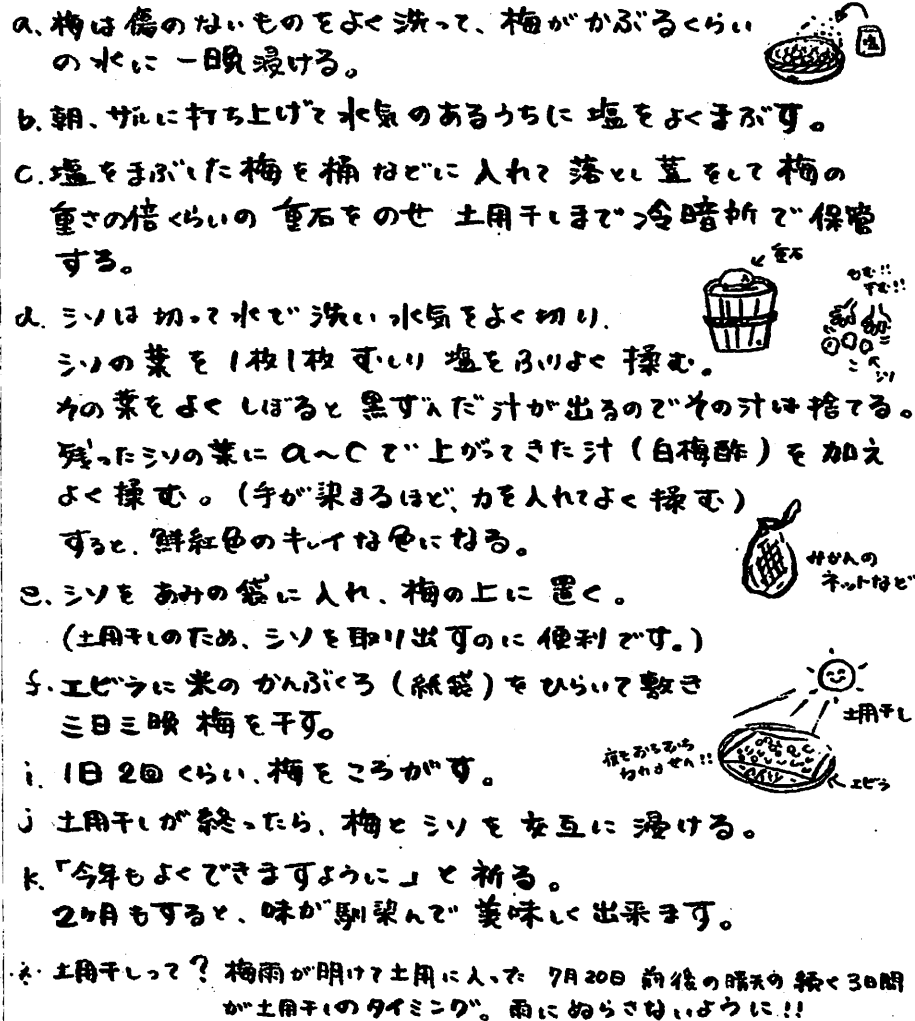 a. 梅は傷のないものをよく洗って、梅がかぶるくらい
の水に一晩浸ける。
塩
b. 朝、ザルに打ち上げて水気のあるうちに塩をよくまぶす。
c. 塩をまぶした梅を桶などに入れて落とし蓋をして梅の
重さの倍くらいの重石をのせ土用干しまで冷暗所で保管
する。
重石
もむ!!
すむ!!
シソ
d. シソは切って水で洗い水気をよく切り、
シソの葉を1枚1枚むしり塩をふりよく揉む。
その葉をよくしぼると黒ずんだ汁が出るのでその汁は捨てる。
残ったシソの葉にa〜cで上がってきた汁(白梅酢)を加え
よく揉む。(手が染まるほど、力を入れてよく揉む)
すると、鮮紅色のキレイな色になる。
みかんの
ネットなど
e. シソをあみの袋に入れ、梅の上に置く。
(土用干しのため、シソを取り出すのに便利です。)
f. エビラに米のかんぶくろ(紙袋)をひらいて敷き
三日三晩梅を干す。
土用干し
夜もおちおち
ねれません!!
エビラ
i. 1日2回くらい、梅をころがす。
j 土用干しが終ったら、梅とシソを交互に漫ける。
k.「今年もよくできますように」と祈る。
2ヶ月もすると、味が馴染んで美味しく出来ます。
※ 土用干しって? 梅雨が明けて土用に入った 7月20日前後の晴天の続く3日間
が土用干しのタイミング。雨にぬらさないように!!